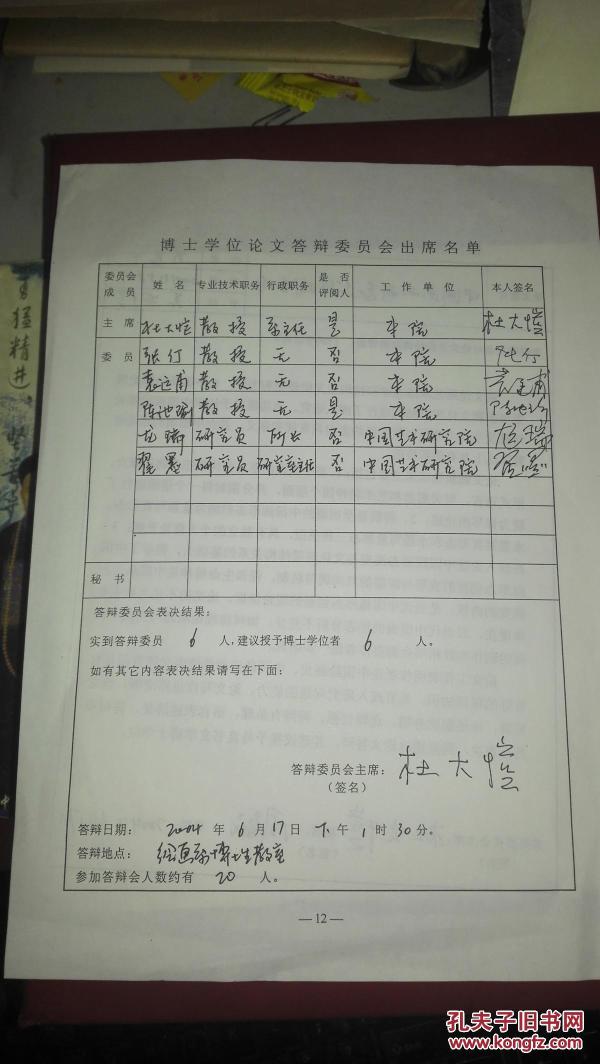 勇猛精进
博士学位论文答辩委员会出席名单
委员会成员 姓名 专业技术职务 行政职务 是否评阅人 工作单位 本人签名
主席 杜大恺 教授 系主任 是 本院 杜大恺
委员 张仃 教授 无 否 本院 张仃
袁运甫 教授 无 否 本院 袁运甫
陈池瑜 教授 无 是 本院 陈池瑜
龙瑞 研究员 所长 否 中国艺术研究院 龙瑞
翟墨 研究员 研究室主任 否 中国艺术研究院 翟墨
秘书
答辩委员会表决结果:
实到答辩委员 6 人,建议授予博士学位者 6 人。
如有其它内容表决结果请写在下面:
答辩委员会主席: 杜大恺
(签名)
答辩日期: 2004 年 6 月 17 日 下午 1 时 30 分。
答辩地点: 绘画系博士生教室
参加答辩会人数约有 20 人。
—12—
孔夫子旧书网
KONGFZ.COM